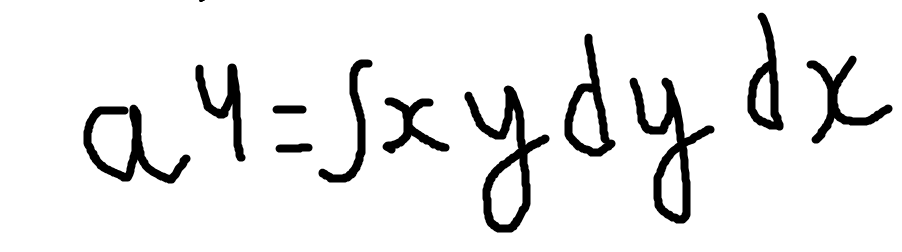 a⁴ = ∫xy dy dx